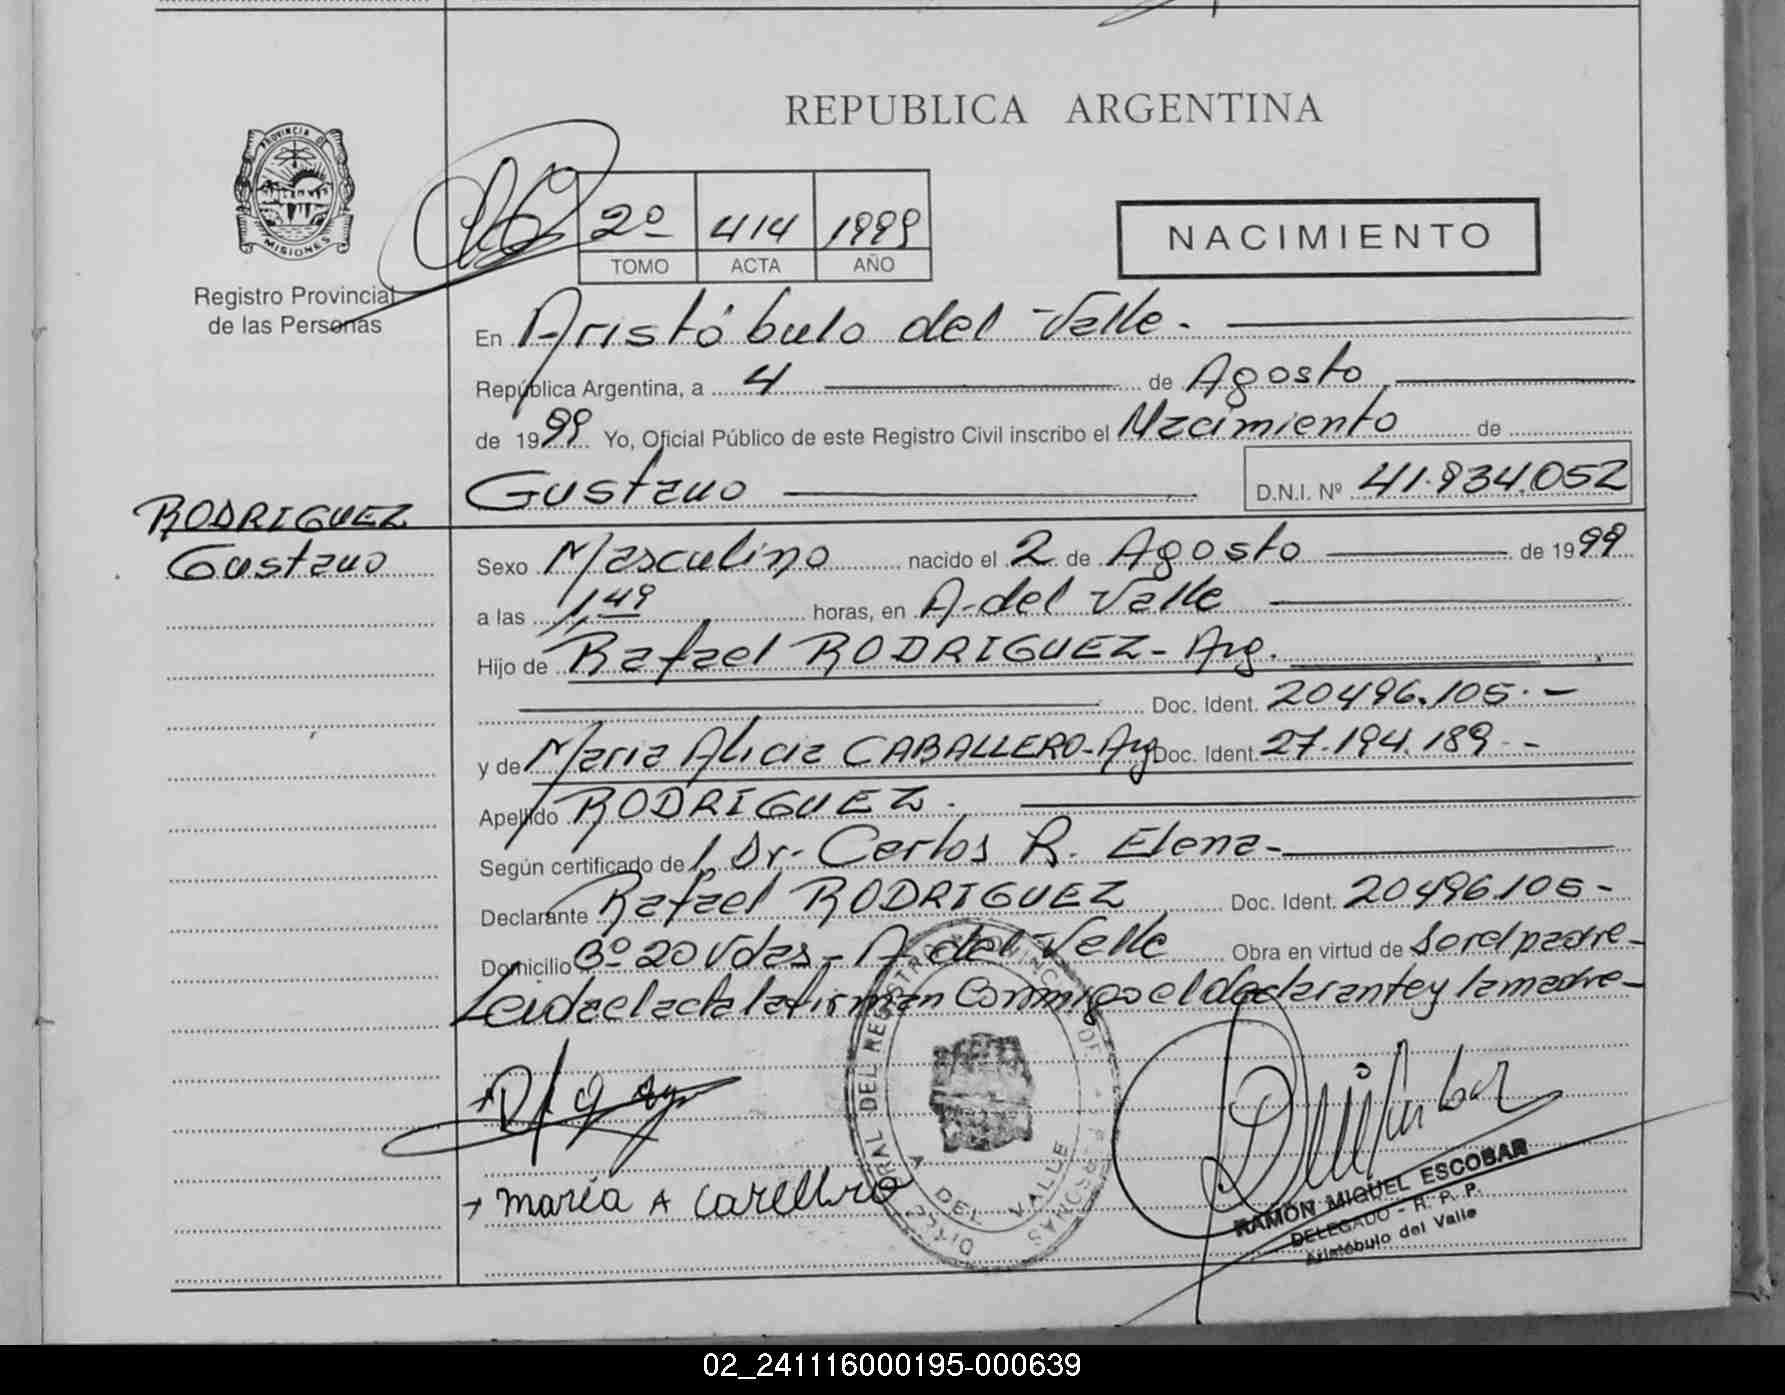 REPUBLICA ARGENTINA
PROVINCIA DE
MISIONES
Registro Provincial
de las Personas
2º 414 1999
TOMO ACTA AÑO
NACIMIENTO
En Aristóbulo del Valle.
República Argentina, a 4 de Agosto
de 1999 Yo, Oficial Público de este Registro Civil inscribo el Nacimiento de
Gustavo D.N.I. Nº 41.934.052
RODRIGUEZ
Gustavo
Sexo Masculino nacido el 2 de Agosto de 1999
a las 1,49 horas, en A. del Valle
Hijo de Rafael RODRIGUEZ - Arg.
Doc. Ident. 20496.105.-
y de Maria Alicia CABALLERO-Arg Doc. Ident. 27.194.189.-
Apellido RODRIGUEZ.
Según certificado de Dr. Carlos R. Elena-
Declarante Rafael RODRIGUEZ Doc. Ident. 20496.105-
Domicilio Bº 20 Vdas - A. del Valle Obra en virtud de ser el padre-
Leida el acta la firman Conmigo el declarante y la madre-
DEL REGISTRO PROVINCIAL DE PERSONAS
A. DEL VALLE
Maria A
RAMÓN MIGUEL ESCOBAR
DELEGADO - R. P. P.
Aristóbulo del Valle
02_241116000195-000639